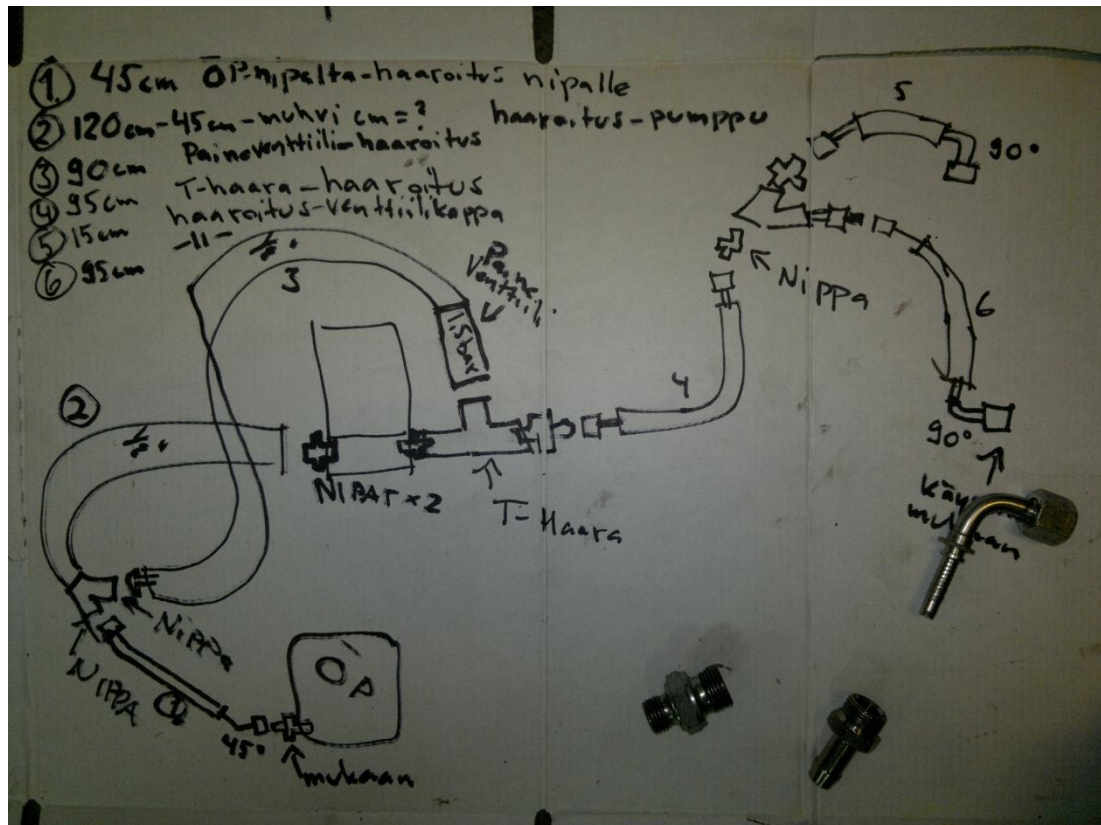 ① 45cm ÖP-nipalta-haaroitus nipalle
② 120cm-45cm-muhvi cm=? haaroitus-pumppu
③ 90cm Paineventtiili-haaroitus
④ 95cm T-haara-haaroitus
⑤ 15cm haaroitus-venttiilikoppa
⑥ 95cm -11-
5
90°
Nippa
6
90°
3
Paineventtiili
1.5bar
4
②
NIPAT x2
T-Haara
Nippa
NIPPA
①
45°
ÖP
mukaan
mukaan